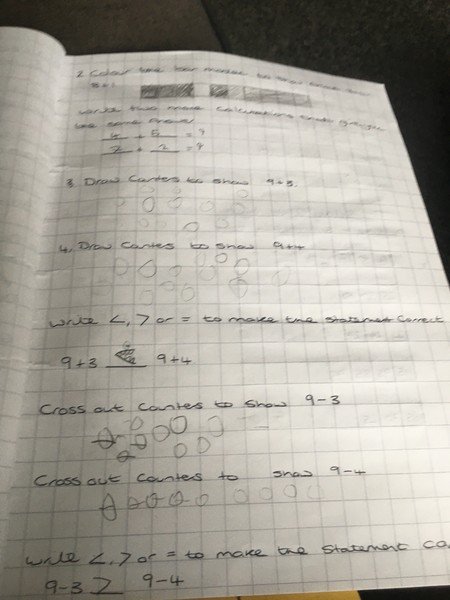 2. Colour the bar model to show
8+1
Write two more calculations
the same answer
4 + 5 = 9
7 + 2 = 9
3. Draw Counters to show 9+3.
4. Draw Counters to show 9+4
Write <, > or = to make the statement Correct
9+3 < 9+4
Cross out Counters to show 9-3
Cross out Counters to show 9-4
Write <, > or = to make the statement co
9-3 > 9-4